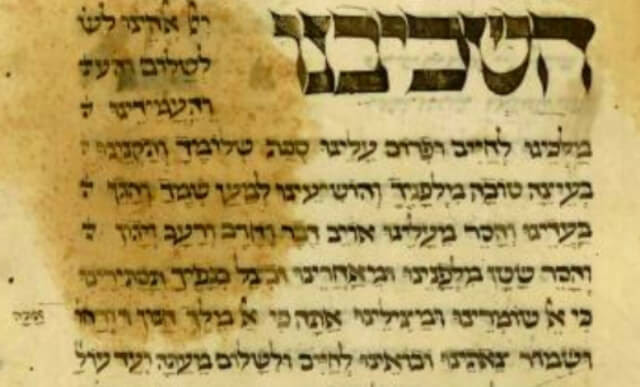 השכיבנו ייי אלהינו לש
לשלום
והעמידינו
מלכינו לחיים ופרוס עלינו סכת שלומיך ותקנינו
בעיצה טובה מילפניך והושיעינו למען שמך והגן
בעדינו והסר מעלינו אויב דבר וחרב ורעב ויגון
והסר שטן מלפנינו ומאחרינו ובצל כנפיך תסתירינו
כי אל שומרינו ומצילינו אתה כי אל מלך חנון ורחו
ושמור צאתינו ובואינו לחיים ולשלום מעתה ועד עול